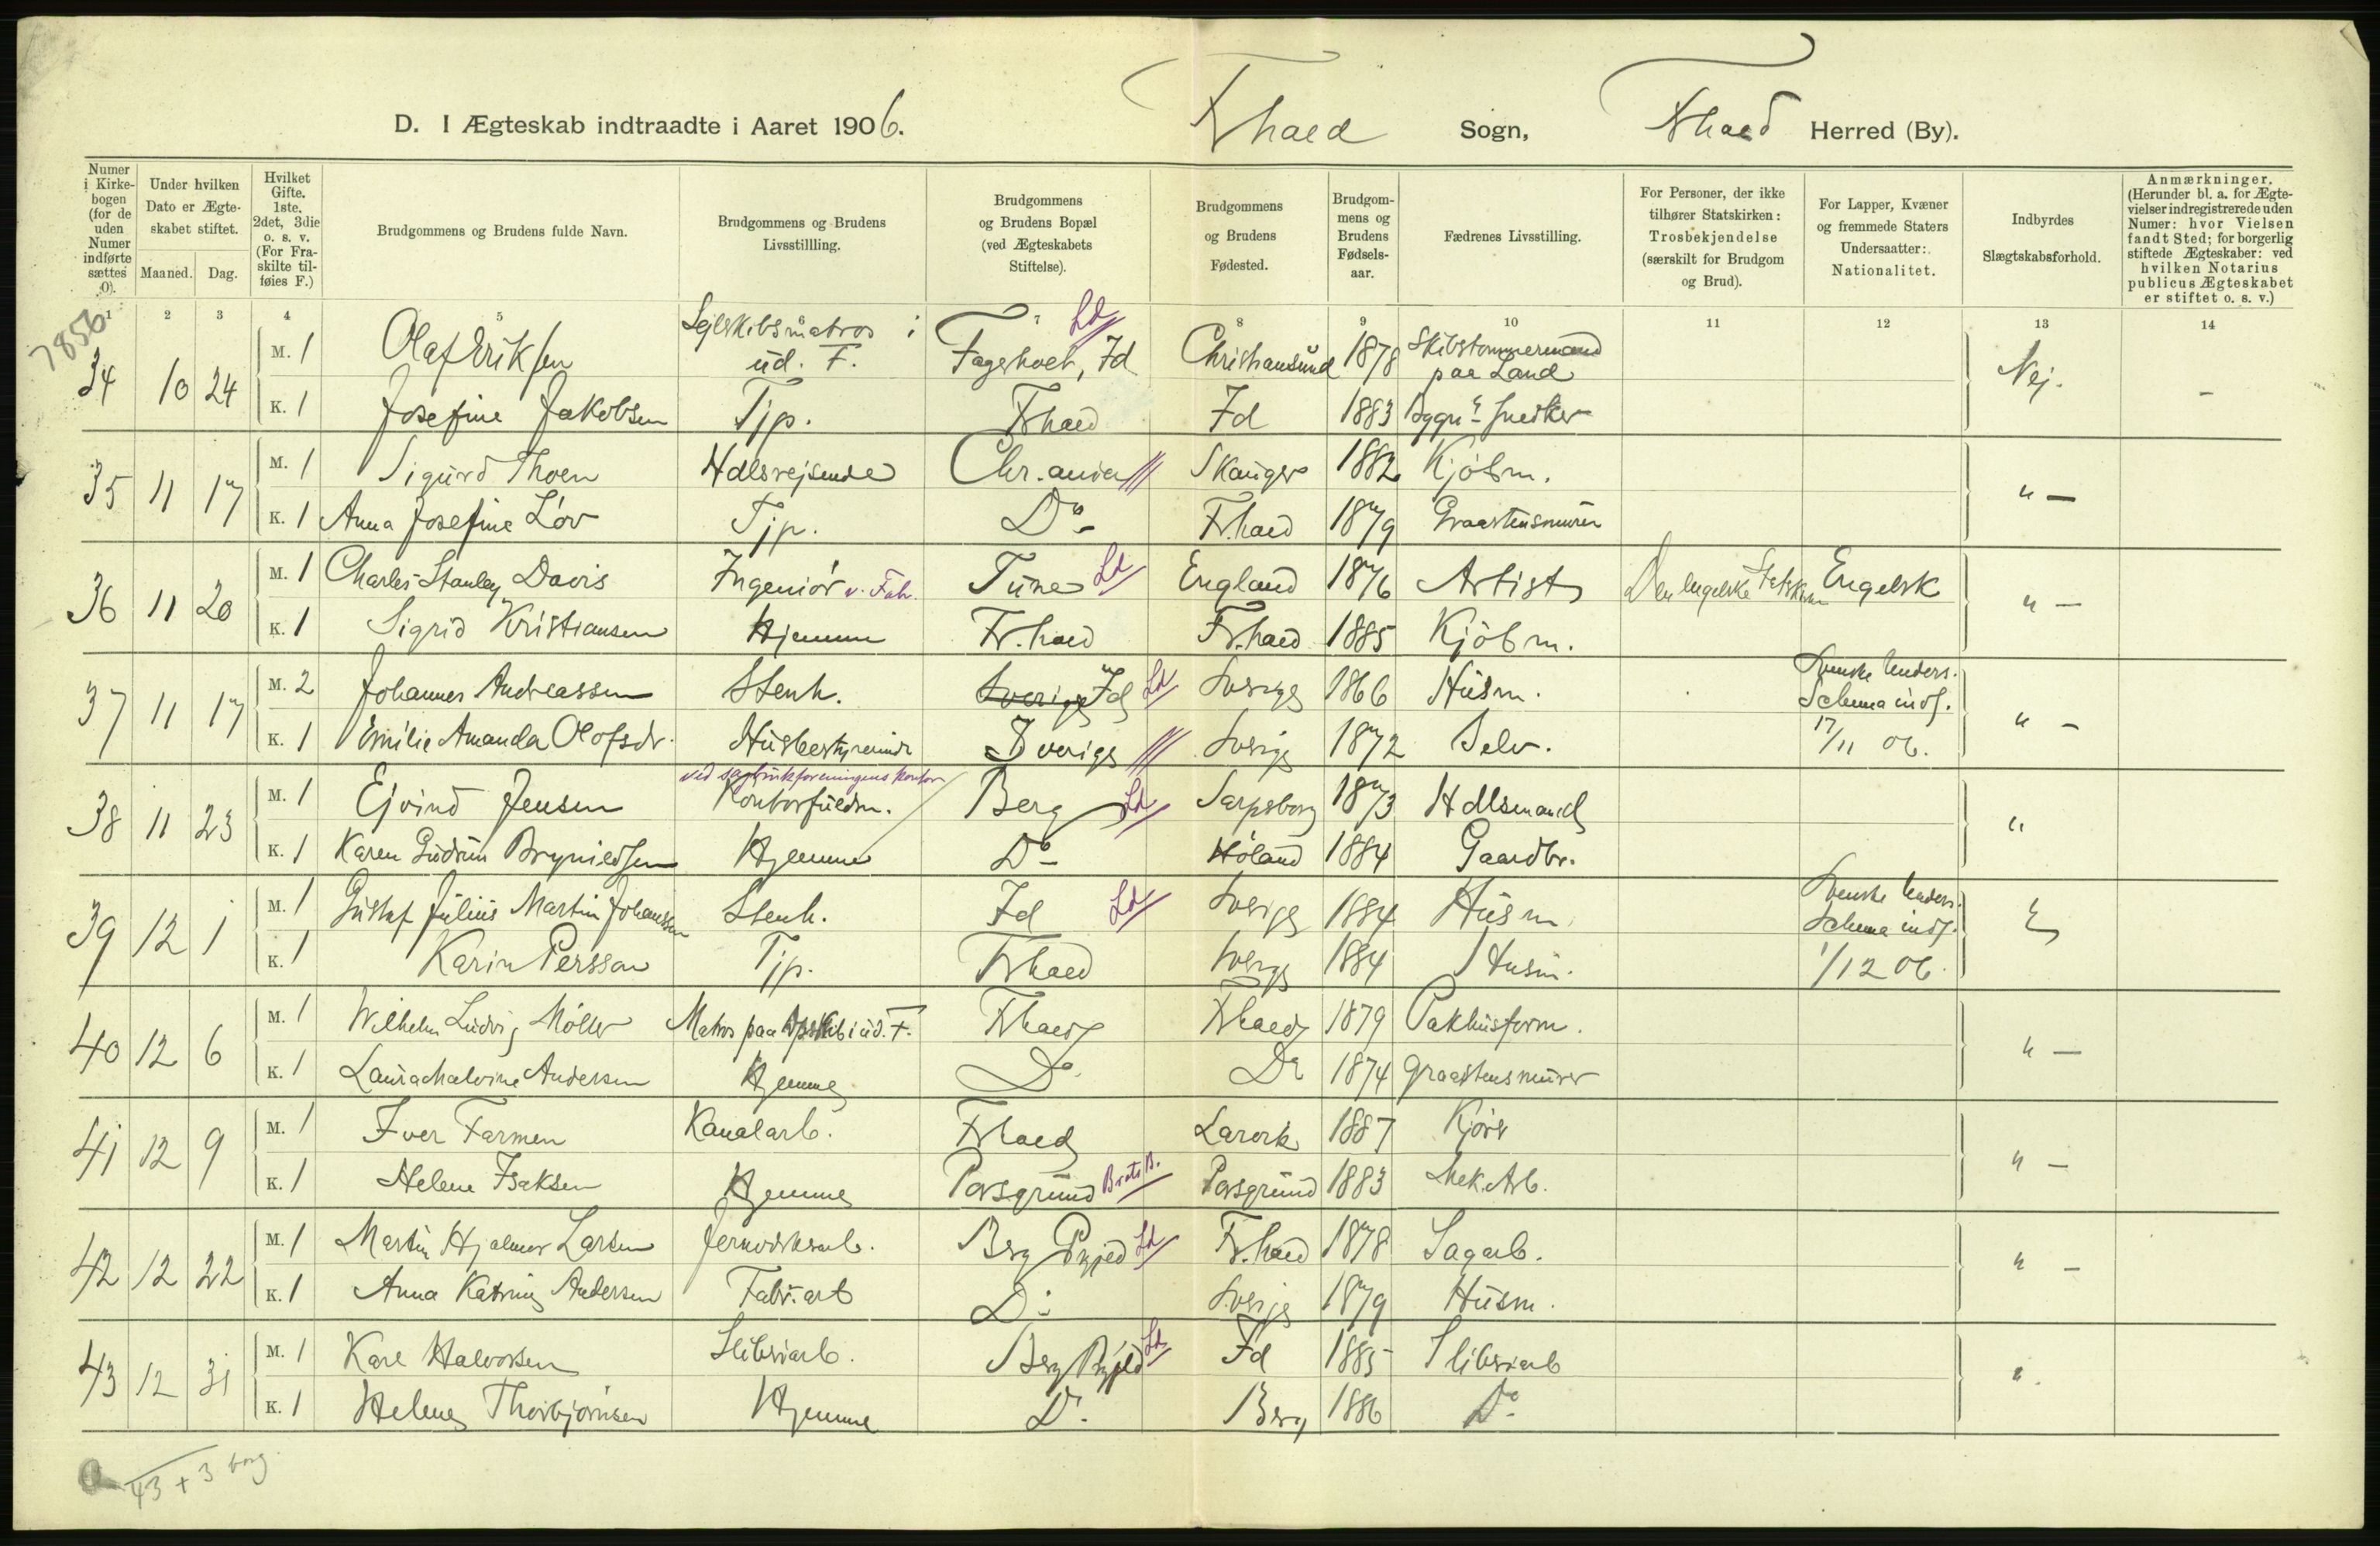 D. I Ægteskab indtraadte i Aaret 1906. Fr.hald Sogn, Fr.hald Herred (By).
Numer i Kirkebogen (for de uden Numer indførte sættes 0).
Under hvilken Dato er Ægteskabet stiftet.
Maaned. Dag.
Hvilket Gifte. 1ste, 2det, 3die o. s. v. (For Fraskilte tilføies F.)
Brudgommens og Brudens fulde Navn.
Brudgommens og Brudens Livsstillling.
Brudgommens og Brudens Bopæl (ved Ægteskabets Stiftelse).
Brudgommens og Brudens Fødested.
Brudgommens og Brudens Fødselsaar.
Fædrenes Livsstilling.
For Personer, der ikke tilhører Statskirken: Trosbekjendelse (særskilt for Brudgom og Brud).
For Lapper, Kvæner og fremmede Staters Undersaatter: Nationalitet.
Indbyrdes Slægtskabsforhold.
Anmærkninger. (Herunder bl. a. for Ægtevielser indregistrerede uden Numer: hvor Vielsen fandt Sted; for borgerlig stiftede Ægteskaber: ved hvilken Notarius publicus Ægteskabet er stiftet o. s. v.)
1 2 3 4 5 6 7 8 9 10 11 12 13 14
7856
34 10 24 M. 1 Olaf Eriksen Sejlskibsmatros i ud. F. Fagerholt, Id Ld Christiansund 1878 Skibstømmermand paa Land Nej. -
K. 1 Josefine Jakobsen Tjp. Fr.hald Id 1883 Bygn.s Snedker
35 11 17 M. 1 Sigurd Thoen Hdlsrejsende Chr.ania Skauger 1882 Kjøbm. " -
K. 1 Anna Josefine Løv Tjp. Do - Fr.hald 1879 Graastensmurer
36 11 20 M. 1 Charles Stanley Davis Ingeniør v. Fabr. Tune Ld England 1876 Artist Den engelske Statskirke Engelsk " -
K. 1 Sigrid Kristiansen Hjemme Fr.hald Fr.hald 1885 Kjøbm.
37 11 17 M. 2 Johannes Andreassen Stenh. Sverige Id Ld Sverige 1866 Husm. Svenske Unders. Schema inds. 17/11 06. " -
K. 1 Emilie Amanda Olofsdr. Husbestyrerinde Sverige Sverige 1872 Selv.
38 11 23 M. 1 Ejvind Jensen ved Sagbrukforeningens kontor Kontorfuldm. Berg Ld Sarpsborg 1873 Hdlsmand "
K. 1 Karen Gudrun Brynildsen Hjemme Do - Høland 1884 Gaardbr.
39 12 1 M. 1 Gustaf Julius Martin Johansson Stenh. Id Ld Sverige 1884 Husm Svenske Unders. Schema inds. 1/12 06.
K. 1 Karin Persson Tjp. Fr.hald Sverge 1884 Husm.
40 12 6 M. 1 Wilhelm Ludvig Møller Matros paa Dpskib i ud. F. Fr.hald Fr.hald 1879 Pakhusform. " -
K. 1 Laura Malvine Andersen Hjemme Do Do 1874 Graastensmurer
41 12 9 M. 1 Iver Farmen Kanalarb. Fr.hald Larvik 1887 Kjører " -
K. 1 Helene Isaksen Hjemme Porsgrund Brats B. Porsgrund 1883 Mek. Arb.
42 12 22 M. 1 Martin Hjalmar Larsen Jernverksarb. Berg Prgjeld Ld Fr.hald 1878 Sagarb. " -
K. 1 Anna Katrine Andersen Fabr.arb Do - Sverige 1879 Husm.
43 12 31 M. 1 Karl Halvorsen Sliberiarb. Berg Prgjeld Ld Id 1885 Sliberiarb "
K. 1 Helene Thorbjørnsen Hjemme Do. Berg 1886 Do -
43 + 3 borg